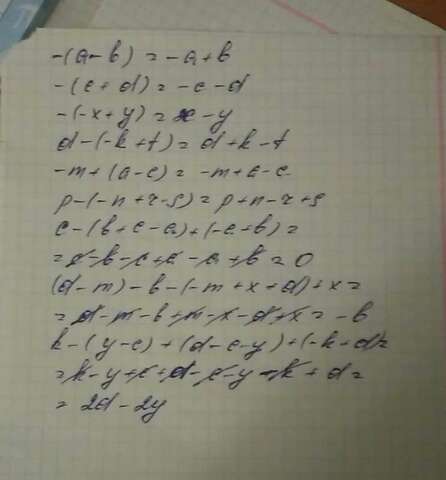 -(a-b) = -a+b
-(c+d) = -c-d
-(-x+y) = x-y
d-(-k+t) = d+k-t
-m+(a-c) = -m+a-c
p-(-n+r-s) = p+n-r+s
c-(b+c-a)+(-a+b) =
= c-b-c+a-a+b = 0
(d-m)-b-(-m+x+d)+x =
= d-m-b+m-x-d+x = -b
k-(y-c)+(d-c-y)+(-k+d) =
= k-y+c+d-c-y-k+d =
= 2d-2y